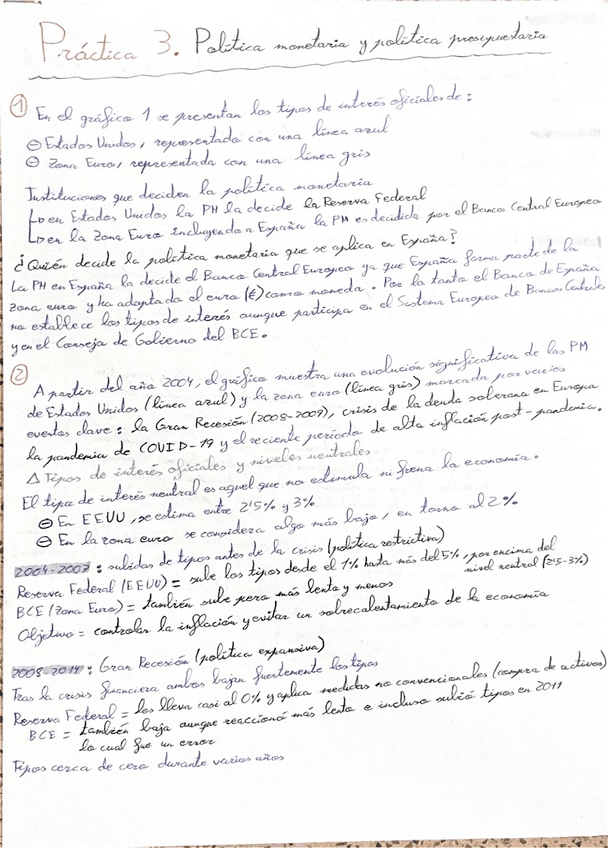 Práctica 3. Política monetaria y política presupuestaria
① En el gráfico 1 se presentan los tipos de interés oficiales de:
⊖ Estados Unidos, representado con una línea azul
⊖ Zona Euro, representada con una línea gris
Instituciones que deciden la política monetaria
↳ en Estados Unidos la PM la decide la Reserva Federal
↳ en la Zona Euro incluyendo a España la PM es decidida por el Banco Central Europeo
¿Quién decide la política monetaria que se aplica en España?
La PM en España la decide el Banco Central Europeo ya que España forma parte de la
zona euro y ha adoptado el euro (€) como moneda. Por lo tanto el Banco de España
no establece los tipos de interés aunque participa en el Sistema Europeo de Bancos Centrales
y en el Consejo de Gobierno del BCE.
② A partir del año 2004, el gráfico muestra una evolución significativa de las PM
de Estados Unidos (línea azul) y la zona euro (línea gris) marcada por varios
eventos clave: la Gran Recesión (2008-2009), crisis de la deuda soberana en Europa
la pandemia de COVID-19 y el reciente período de alta inflación post-pandemia.
△ Tipos de interés oficiales y niveles neutrales
El tipo de interés neutral es aquel que no estimula ni frena la economía.
⊖ En EEUU, se estima entre 2'5% y 3%
⊖ En la zona euro se considera algo más bajo, en torno al 2%
2004-2007: subidas de tipos antes de la crisis (política restrictiva)
Reserva Federal (EEUU) = sube los tipos desde el 1% hasta más del 5%, por encima del
nivel neutral (2'5-3%)
BCE (Zona Euro) = también sube pero más lento y menos
Objetivo = controlar la inflación y evitar un sobrecalentamiento de la economía
2008-2014: Gran Recesión (política expansiva)
Tras la crisis financiera ambos bajan fuertemente los tipos
Reserva Federal = los lleva casi al 0% y aplica medidas no convencionales (compra de activos)
BCE = también baja aunque reaccionó más lento e incluso subió tipos en 2011
lo cual fue un error
Tipos cerca de cero durante varios años